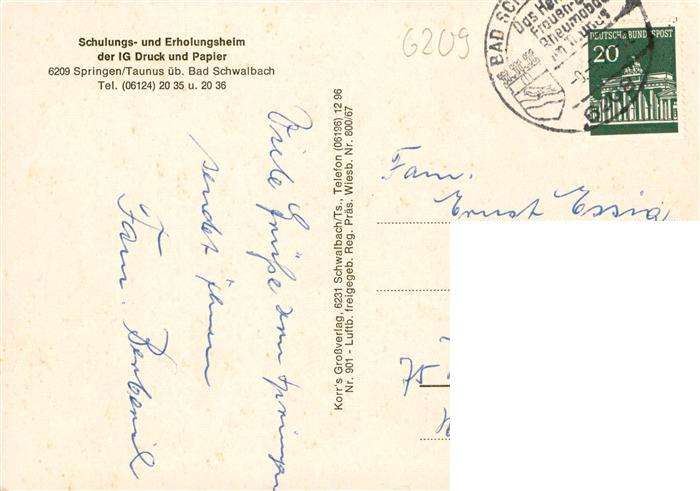 Schulungs- und Erholungsheim
der IG Druck und Papier
6209 Springen/Taunus üb. Bad Schwalbach
Tel. (06124) 20 35 u. 20 36
6209
BAD SC
Das He
Frauen-
Rheumabad
DEUTSCHE BUNDESPOST
20
Viele Grüße aus Springen
sendet ihnen
Fam.
Korr's Großverlag, 6231 Schwalbach/Ts., Telefon (06196) 12 96
Nr. 901 - Luftb. freigegeb. Reg. Präs. Wiesb. Nr. 800/67
Fam.
Ernst Essig
75